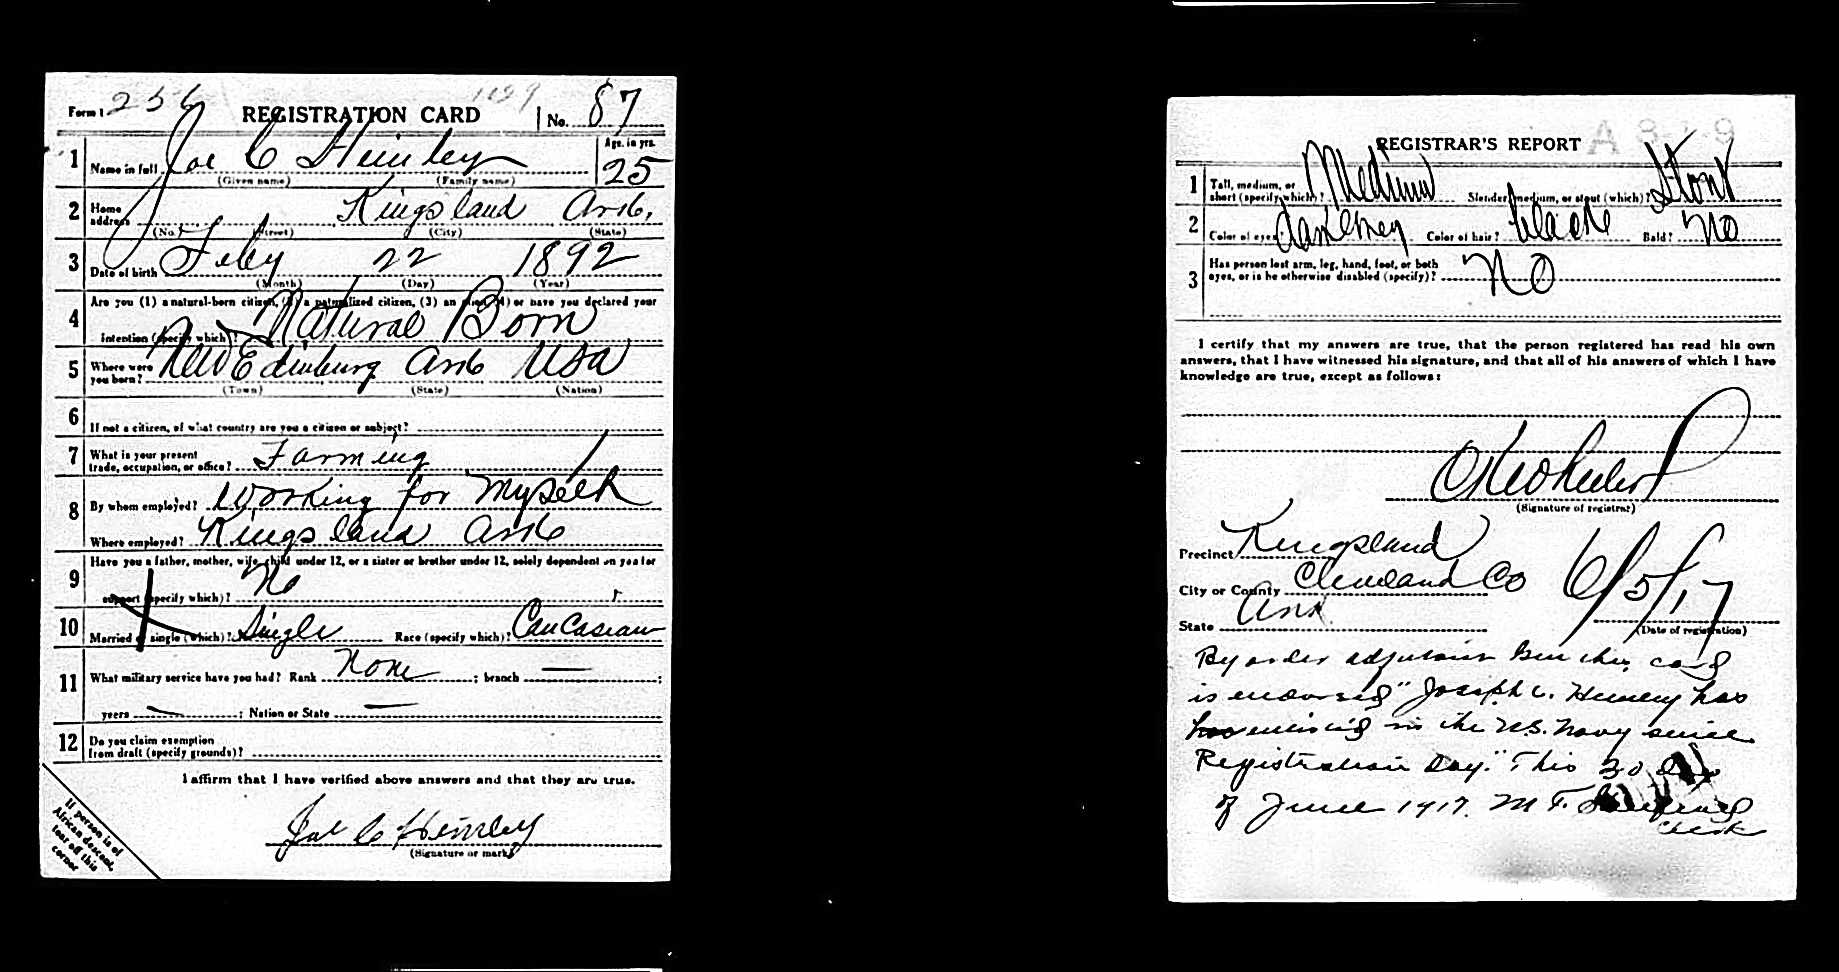 Form 1 256 REGISTRATION CARD 1129 No. 87
1 Name in full Joe C Hemley Age, in yrs. 25
(Given name) (Family name)
2 Home address Kingsland Ark.
(No.) (Street) (City) (State)
3 Date of birth Feby 22 1892
(Month) (Day) (Year)
4 Are you (1) a natural-born citizen, (2) a naturalized citizen, (3) an alien, (4) or have you declared your
intention (specify which)? Natural Born
5 Where were you born? New Edinburg Ark USA
(Town) (State) (Nation)
6 If not a citizen, of what country are you a citizen or subject?
7 What is your present trade, occupation, or office? Farming
8 By whom employed? Working for Myself
Where employed? Kingsland Ark
9 Have you a father, mother, wife, child under 12, or a sister or brother under 12, solely dependent on you for
support (specify which)? No
10 Married or single (which)? Single Race (specify which)? Caucasian
11 What military service have you had? Rank None ; branch — ;
years — ; Nation or State —
12 Do you claim exemption from draft (specify grounds)?
I affirm that I have verified above answers and that they are true.
Joe C Hemley
(Signature or mark)
If person is of
African descent,
tear off this
corner
REGISTRAR'S REPORT
1 Tall, medium, or short (specify which)? Medium Slender, medium, or stout (which)? Stout
2 Color of eyes? Color of hair? black Bald? No
3 Has person lost arm, leg, hand, foot, or both
eyes, or is he otherwise disabled (specify)? No
I certify that my answers are true, that the person registered has read his own
answers, that I have witnessed his signature, and that all of his answers of which I have
knowledge are true, except as follows:
(Signature of registrar)
Precinct Kingsland
City or County Cleveland Co 6/5/17
State Ark
(Date of registration)
By order adjutant Gen this card
is endorsed "Joseph C. Hemley has
in the U.S. Navy since
Registration Day." This 30 day
of June 1917. M F.
Clerk